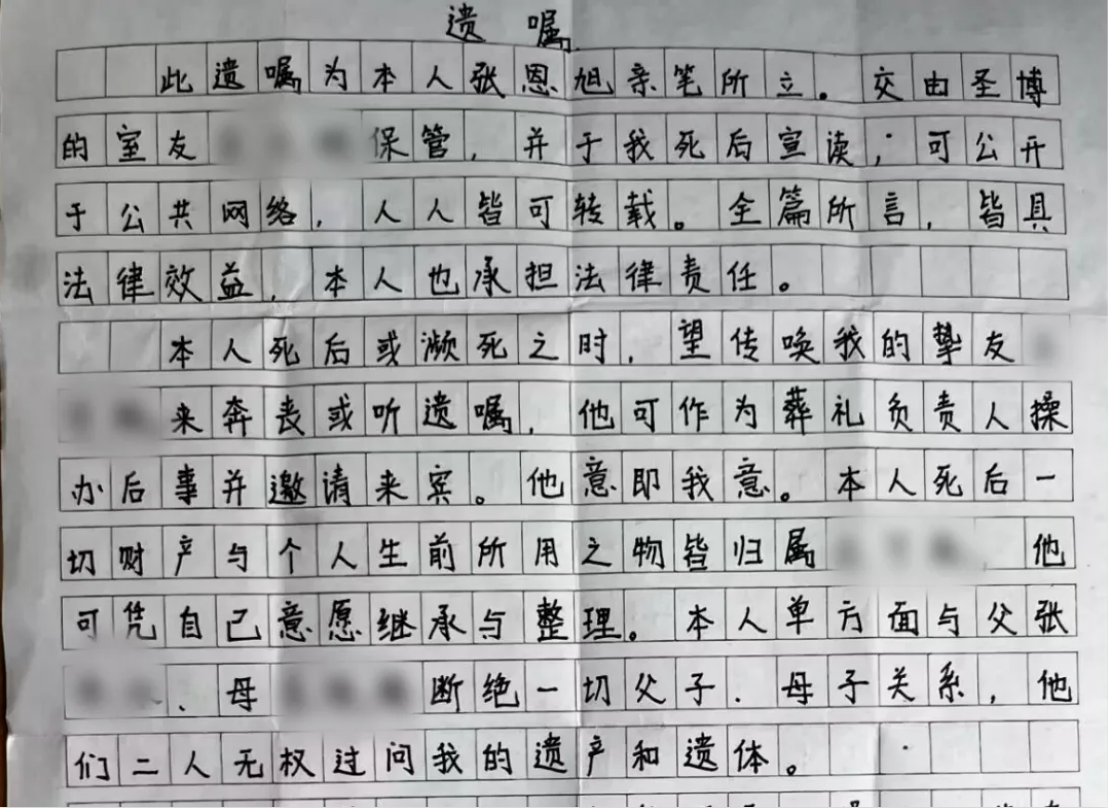 遗嘱
此遗嘱为本人张恩旭亲笔所立。交由圣博
的室友保管,并于我死后宣读;可公开
于公共网络,人人皆可转载。全篇所言,皆具
法律效益,本人也承担法律责任。
本人死后或濒死之时,望传唤我的挚友
来奔丧或听遗嘱,他可作为葬礼负责人操
办后事并邀请来宾。他意即我意。本人死后一
切财产与个人生前所用之物皆归属他
可凭自己意愿继承与整理。本人单方面与父张
、母断绝一切父子、母子关系,他
们二人无权过问我的遗产和遗体。